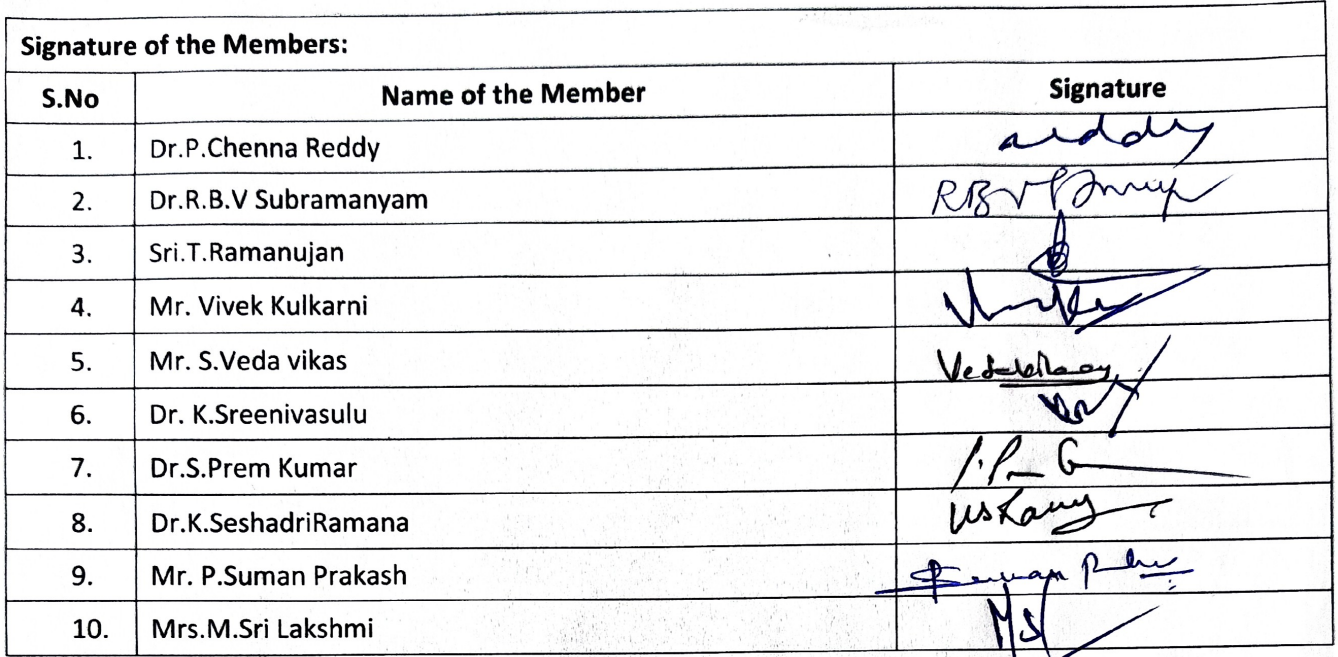 Signature of the Members:
S.No Name of the Member Signature
1. Dr.P.Chenna Reddy reddy
2. Dr.R.B.V Subramanyam RBV
3. Sri.T.Ramanujan
4. Mr. Vivek Kulkarni
5. Mr. S.Veda vikas
6. Dr. K.Sreenivasulu
7. Dr.S.Prem Kumar
8. Dr.K.SeshadriRamana
9. Mr. P.Suman Prakash
10. Mrs.M.Sri Lakshmi